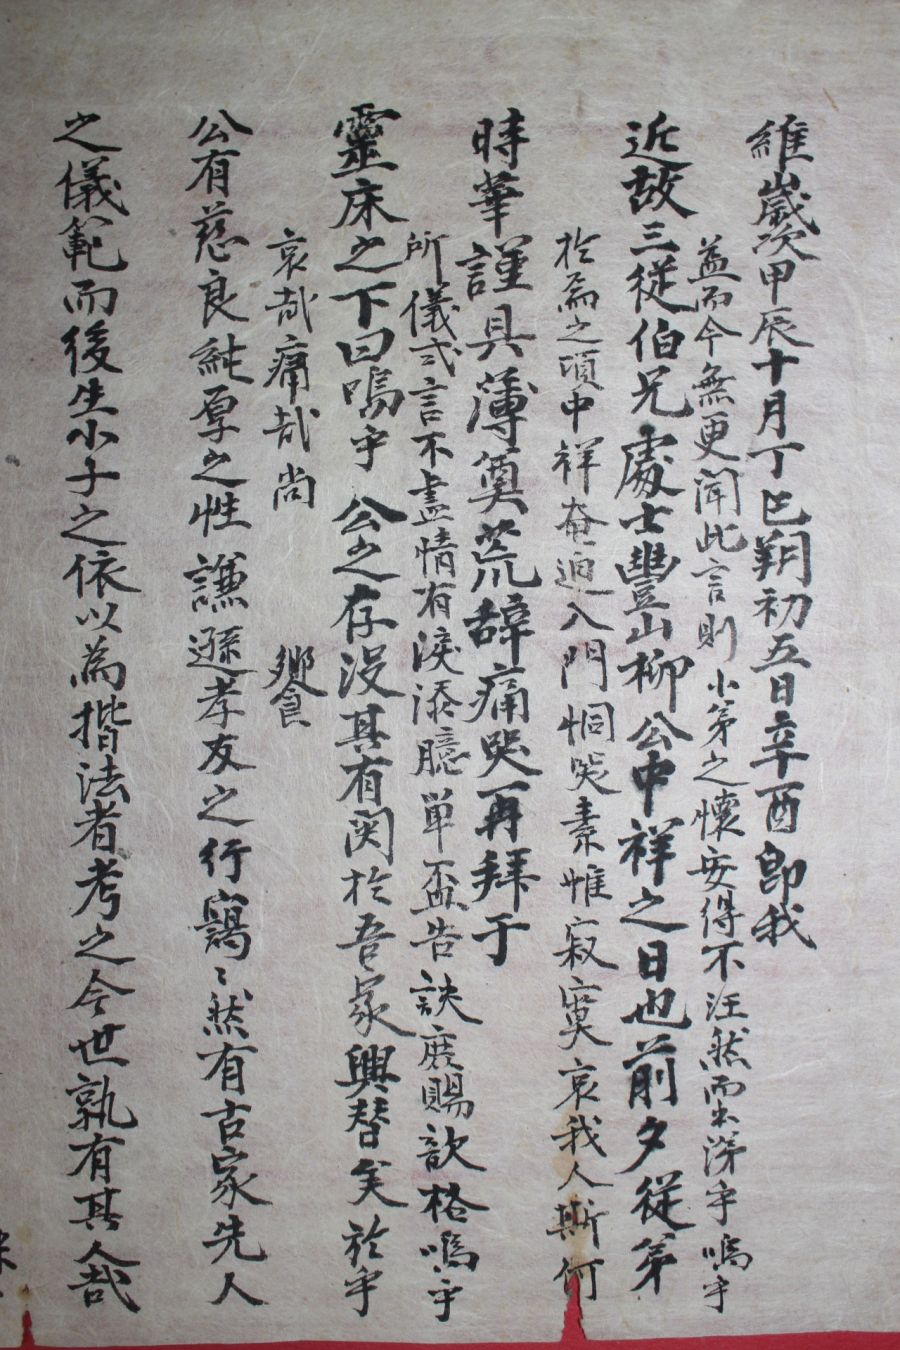 維歲次甲辰十月丁巳朔初五日辛酉卽我
近故三從伯兄處士豐山柳公中祥之日也前夕從弟
時華謹具薄奠荒辞痛哭再拜于
靈床之下曰嗚乎 公之存沒其有関於吾家興替矣於乎
公有慈良純厚之性謙遜孝友之行藹〻然有古家先人
之儀範而後生小子之依以為揩法者考之今世孰有其人哉
益而今無更聞此言則小弟之懷安得不汪然而出涕乎嗚乎
於焉之頃中祥奄迫入門恸哭素帷寂寞哀我人斯何
所儀式言不盡情有淚添臆單盃告訣庶賜歆格嗚乎
哀哉痛哉尚 饗